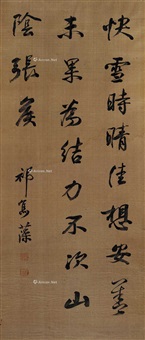 快雪時晴佳想安善
未果為結力不次山
陰張侯
祁寯藻